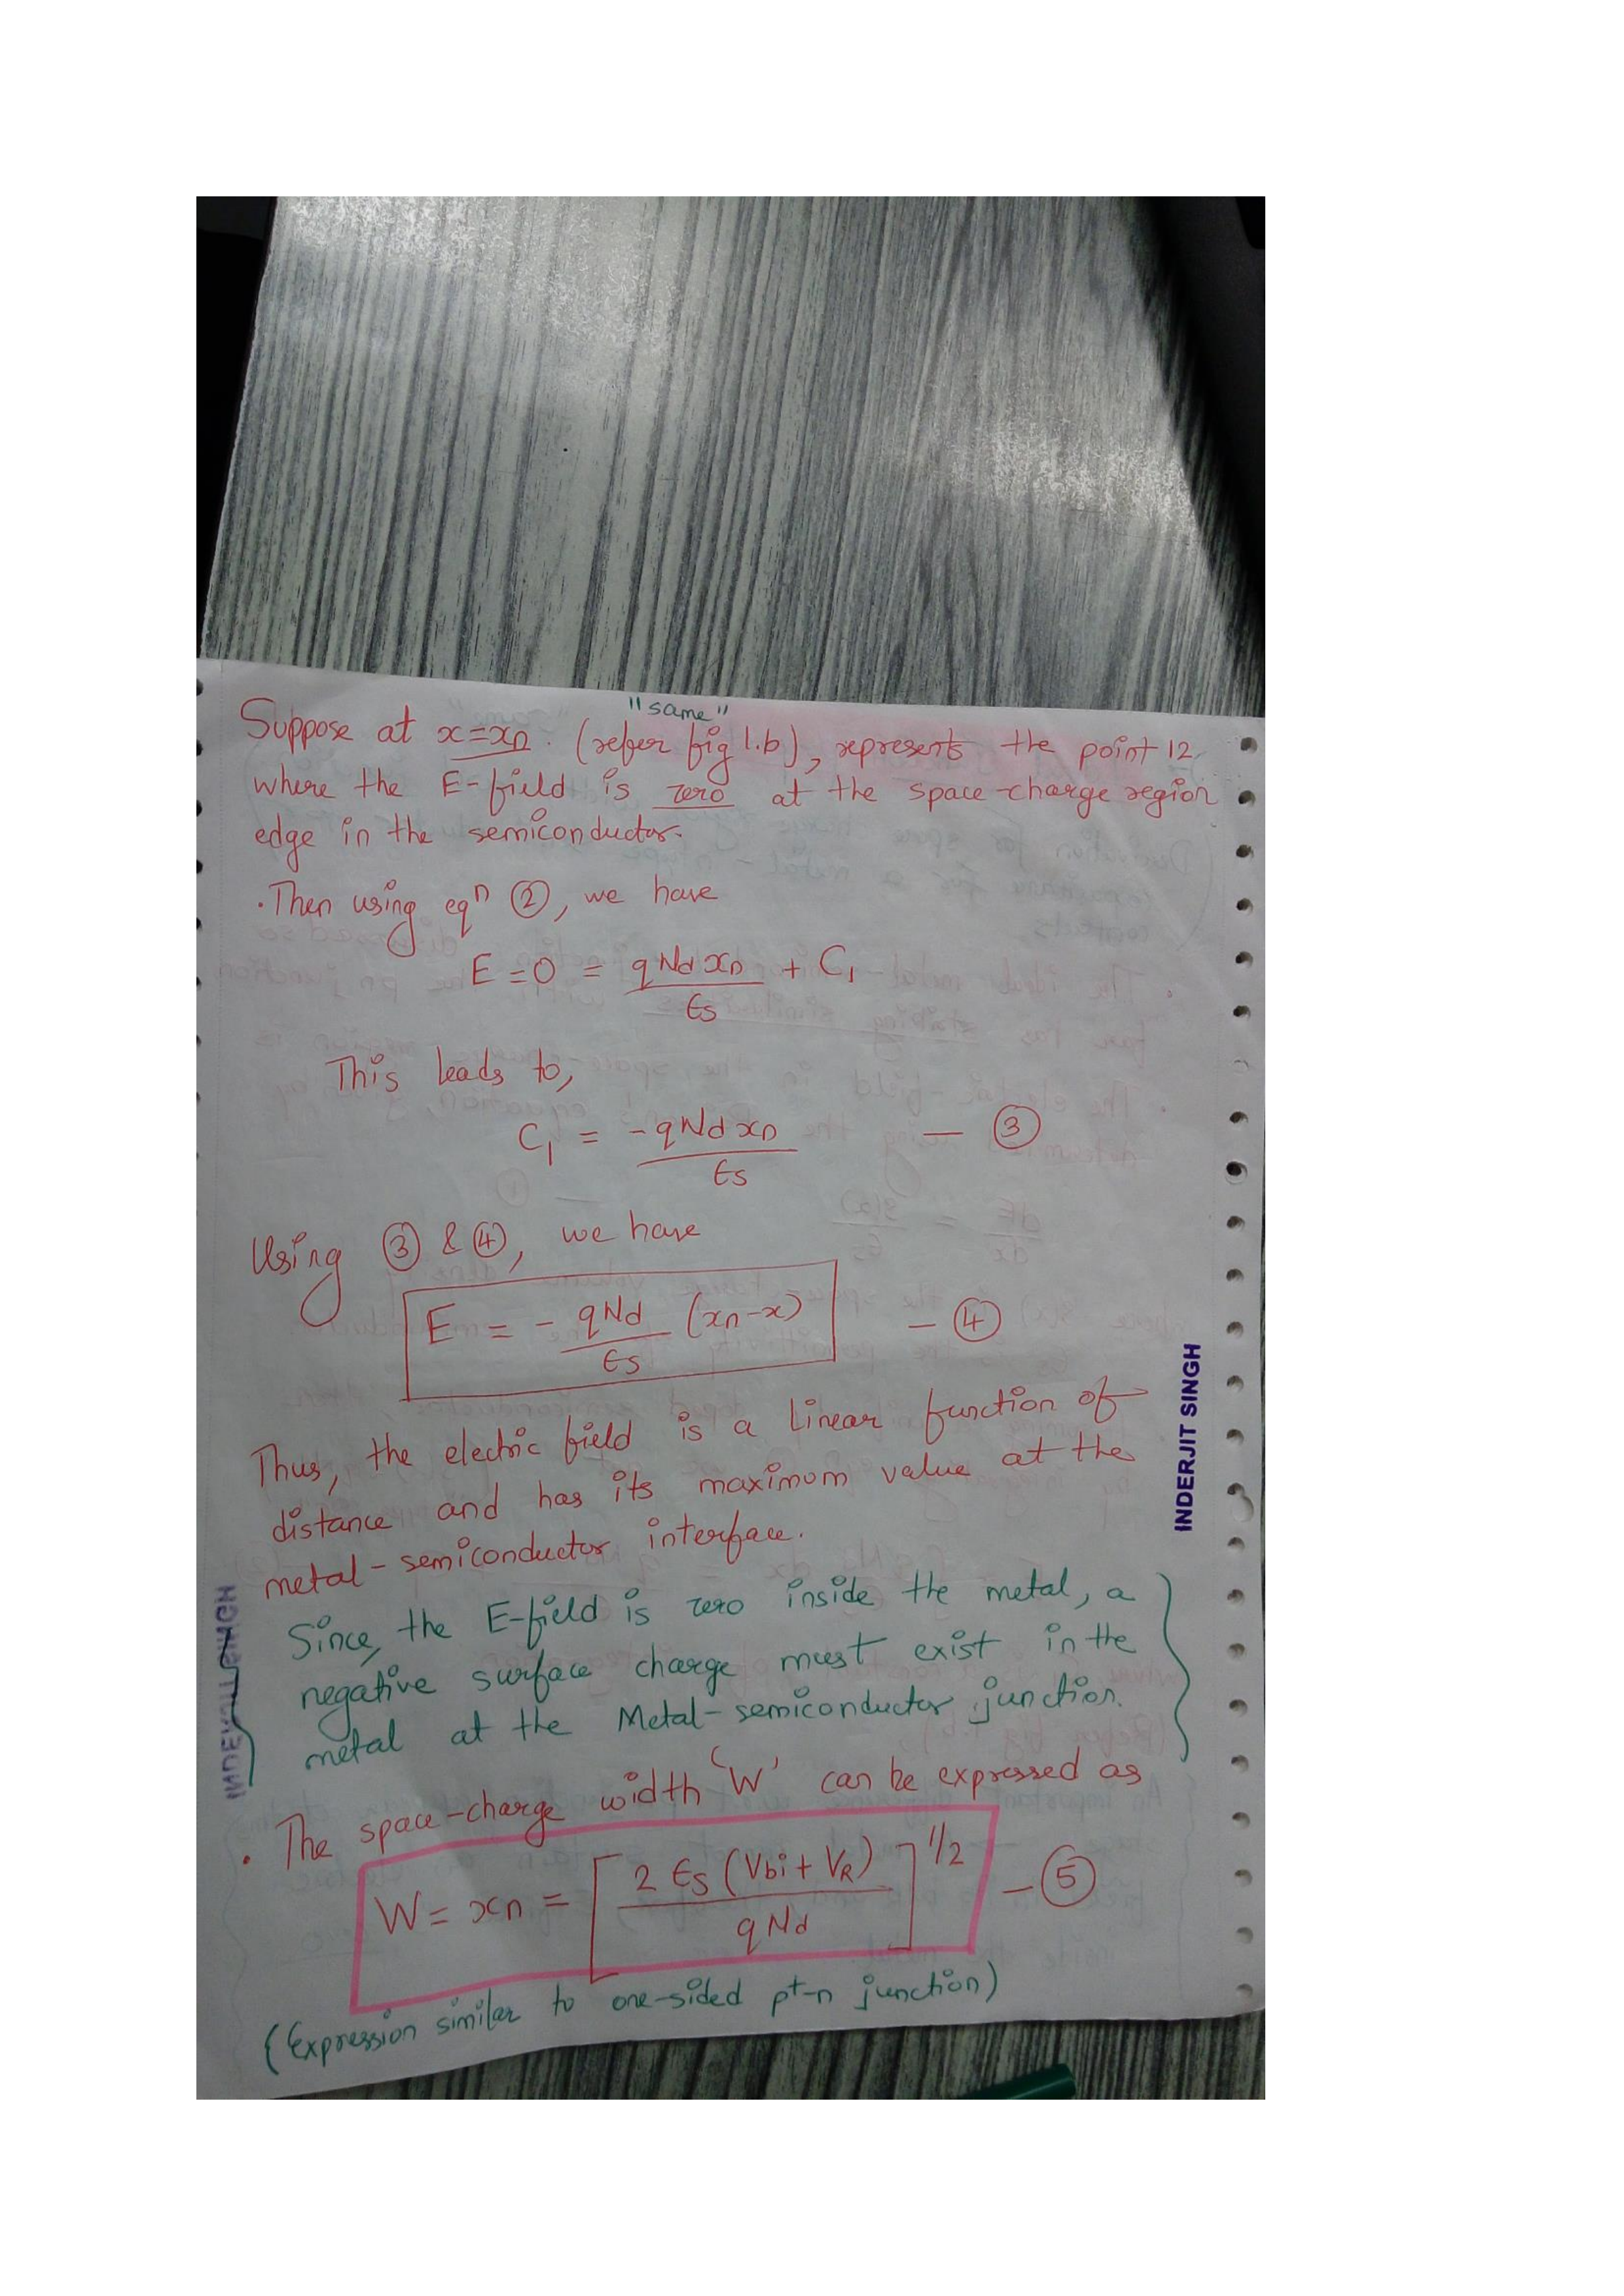 "same"
Suppose at x=xn. (refer fig 1.b), represents the point 12
where the E-field is zero at the space-charge region
edge in the semiconductor.
. Then using eqn ②, we have
E = 0 = qNdxn/ϵs + C1
This leads to,
C1 = -qNdxn/ϵs — ③
Using ③ & ④, we have
E = - qNd/ϵs (xn-x) — ④
Thus, the electric field is a linear function of
distance and has its maximum value at the
metal-semiconductor interface.
Since, the E-field is zero inside the metal, a
negative surface charge must exist in the
metal at the Metal-semiconductor junction.
. The space-charge width 'W' can be expressed as
W = xn = [2ϵs(Vbi+VR)/qNd]^1/2 — ⑤
(Expression similar to one-sided p+-n junction)
INDERJIT SINGH